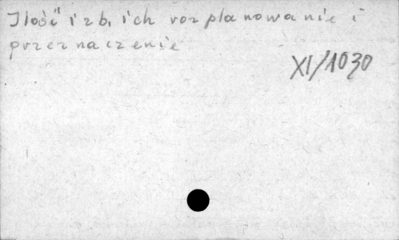 Ilość izb, ich rozplanowanie i
przeznaczenie
XI/1030